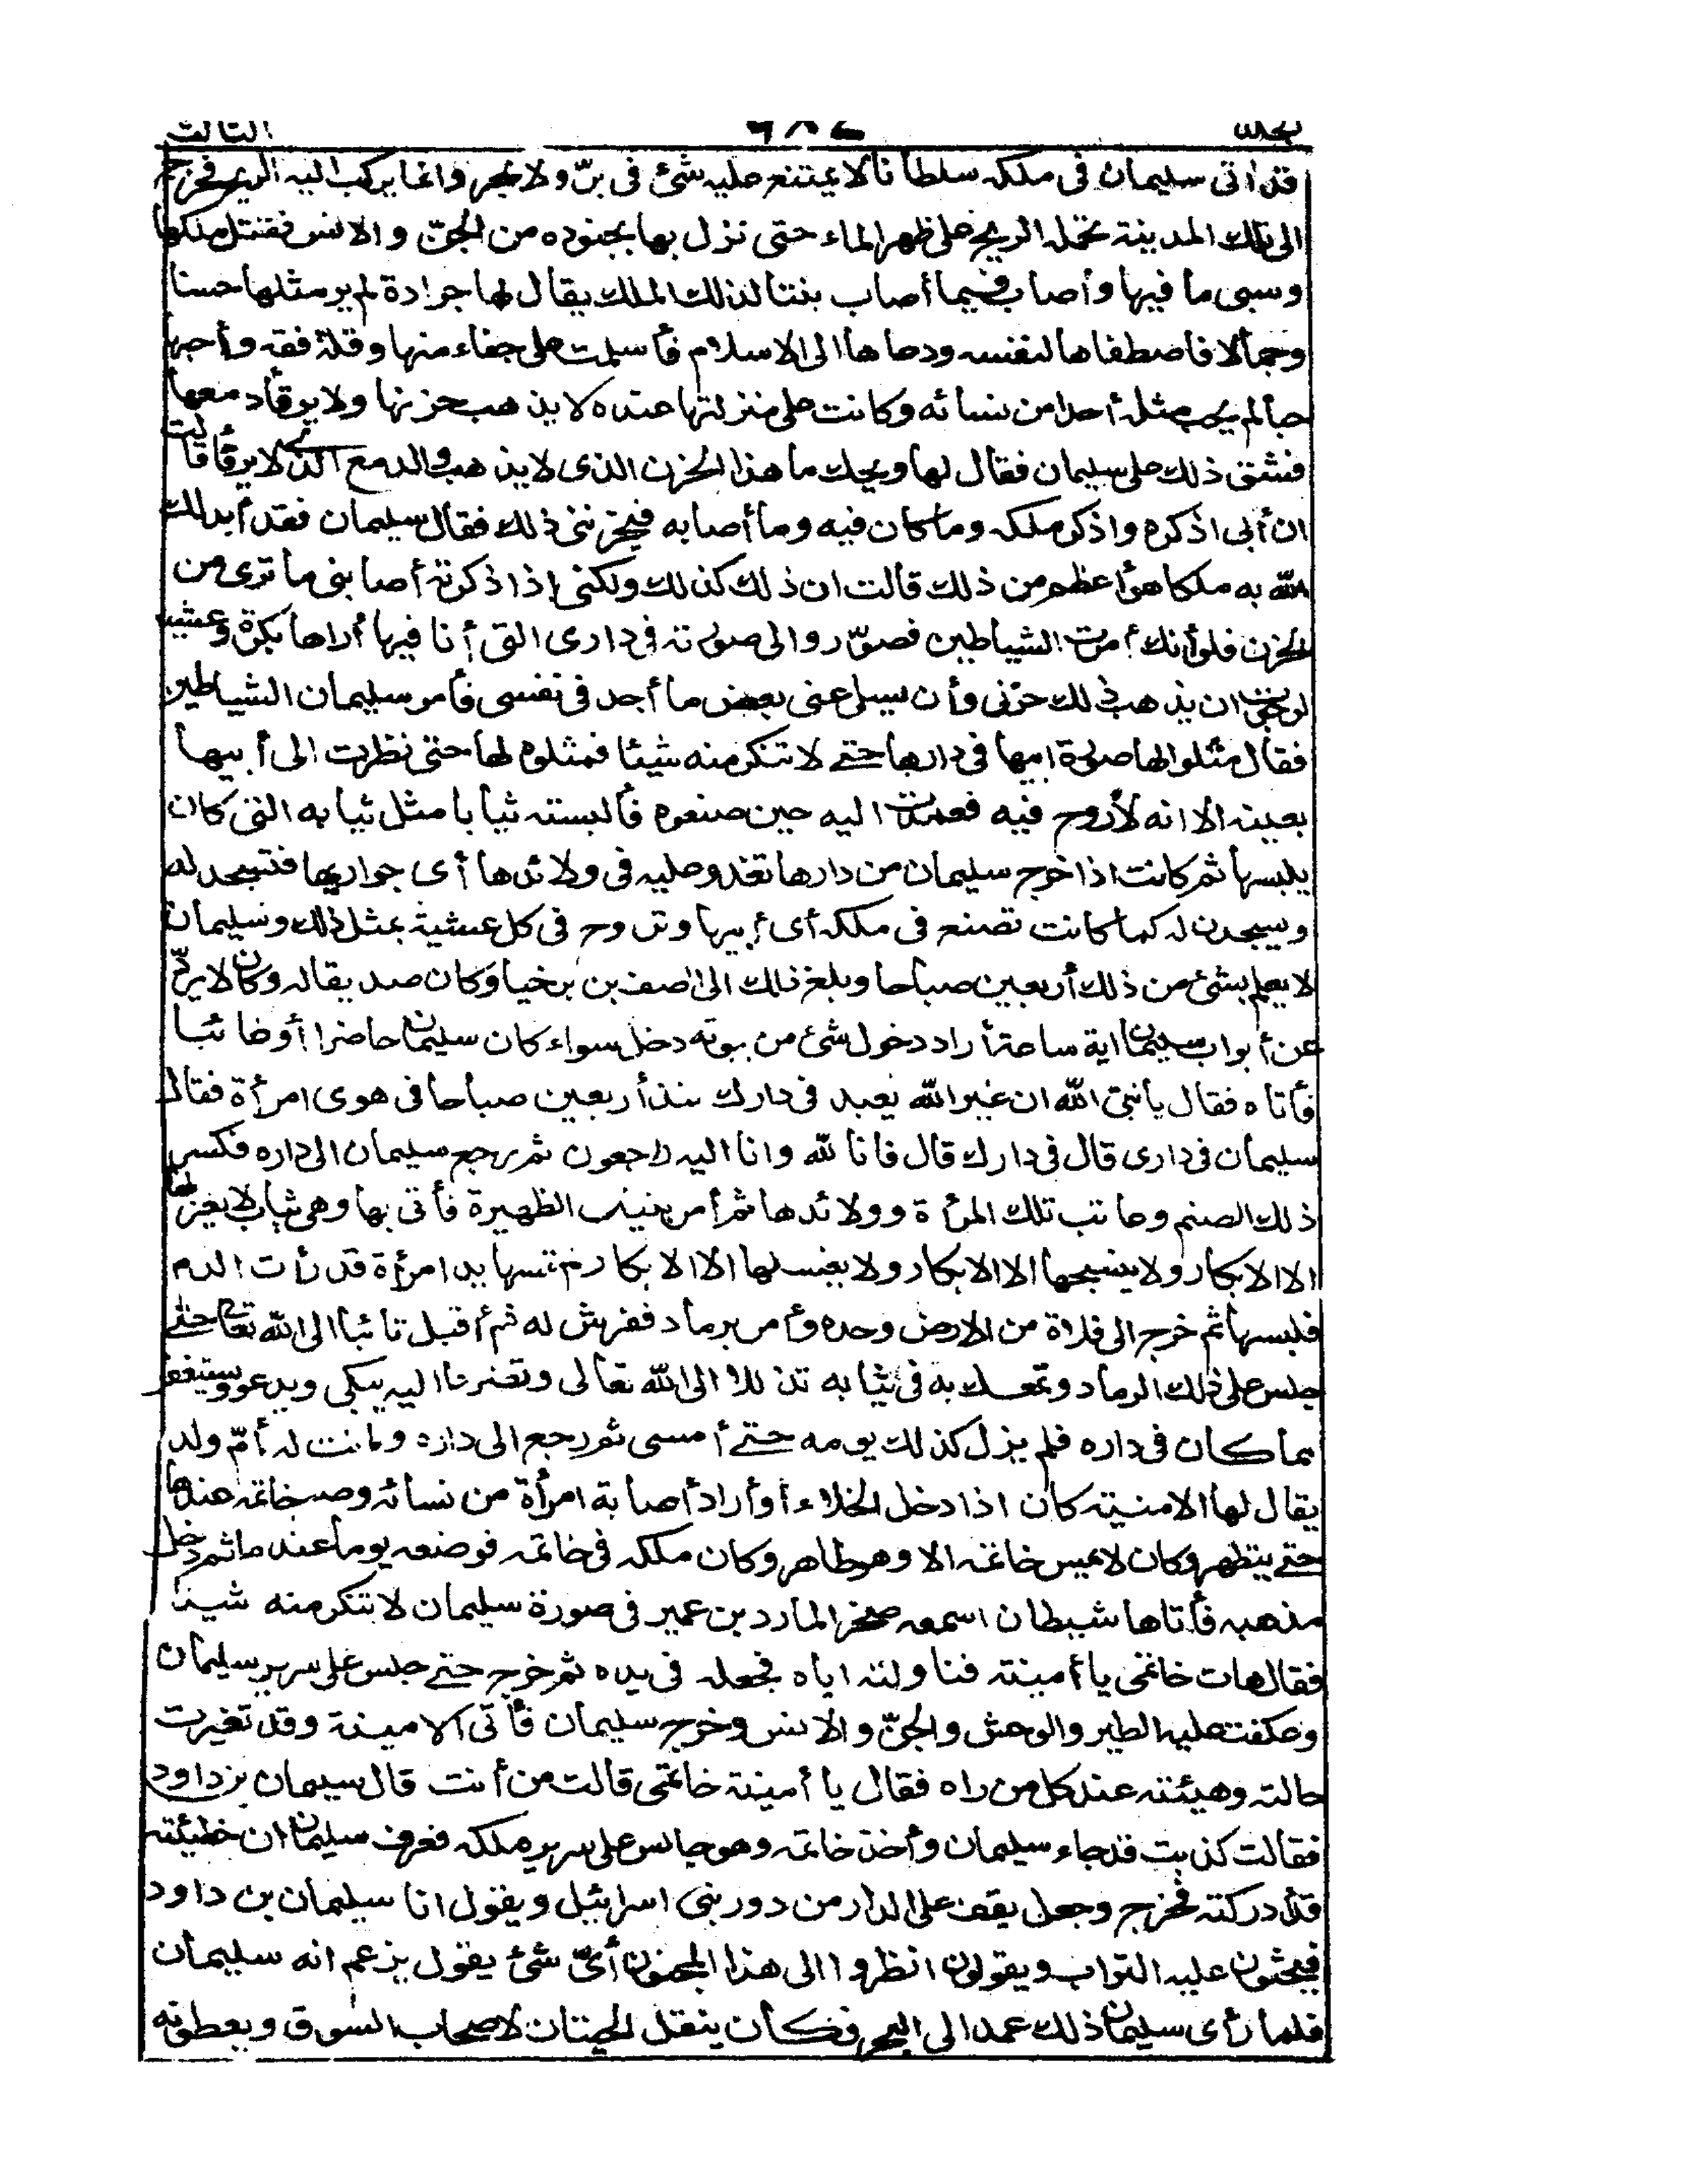 المجلد ٦٨٤ الثالث
قد اتى سليمان فى ملكه سلطانا لا يمتنع عليه شئ فى برّ ولا بحر وانما يركب اليه الريح فخرج
الى تلك المدينة تحمله الريح على ظهر الماء حتى نزل بها بجنوده من الجنّ والانس فقتل ملكها
وسبى ما فيها وأصاب فيما أصاب بنتا لذلك الملك يقال لها جرادة لم ير مثلها حسنا
وجمالا فاصطفاها لنفسه ودعاها الى الاسلام فأسلمت على جفاء منها وقلة فقه وأحبها
حبا لم يحب مثله أحدا من نسائه وكانت على منزلتها عنده لا يذهب حزنها ولا يرقأ دمعها
فشق ذلك على سليمان فقال لها ويحك ما هذا الحزن الذى لا يذهب والدمع الذى لا يرقأ قالت
ان أبى اذكره واذكر ملكه وما كان فيه وما أصابه فيحزننى ذلك فقال سليمان فقد أبدلك
الله به ملكا هو أعظم من ذلك قالت ان ذلك كذلك ولكنى اذا ذكرته أصابنى ما ترى من
الحزن فلو أنك أمرت الشياطين فصوّروا لى صورته فى دارى التى أنا فيها أراها بكرة وعشية
لرجوت ان يذهب ذلك حزنى وأن يسلى عنى بعض ما أجد فى نفسى فأمر سليمان الشياطين
فقال مثلوا لها صورة ابيها فى دارها حتے لا تنكر منه شيئا فمثلوه لها حتى نظرت الى أبيها
بعينه الا انه لا روح فيه فعمدت اليه حين صنعوه فألبسته ثيابا مثل ثيابه التى كان
يلبسها ثم كانت اذا خرج سليمان من دارها تغدو عليه فى ولائدها أى جواريها فتسجد له
ويسجدن له كما كانت تصنع فى ملكه أى أبيها وتروح فى كل عشية بمثل ذلك وسليمان
لا يعلم بشئ من ذلك أربعين صباحا وبلغ ذلك الى اصف بن برخيا وكان صديقا له وكان لا يردّ
عن أبواب سليمان اية ساعة أراد دخول شئ من بيوته دخل سواء كان سليمان حاضرا أو غائبا
فأتاه فقال يا نبىّ الله ان غير الله يعبد فى دارك منذ أربعين صباحا فى هوى امرأة فقال
سليمان فى دارى قال فى دارك قال فانا لله وانا اليه راجعون ثم رجع سليمان الى داره فكسر
ذلك الصنم وعاتب تلك المرأة وولائدها ثم أمر بثياب الظهيرة فأتى بها وهى ثياب لا يغزلها
الا الابكار ولا ينسجها الا الابكار ولا يغسلها الا الابكار لم تمسها يد امرأة قد رأت الدم
فلبسها ثم خرج الى فلاة من الارض وحده وأمر برماد ففرش له ثم أقبل تائبا الى الله تعالى حتے
جلس على ذلك الرماد وتمعك به فى ثيابه تذللا الى الله تعالى وتضرعا اليه يبكى ويدعو ويستغفر
مما كان فى داره فلم يزل كذلك يومه حتے أمسى ثم رجع الى داره وكانت له أمّ ولد
يقال لها الامنية كان اذا دخل الخلاء أو أراد أصابة امرأة من نسائه وضع خاتمه عندها
حتے يتطهر وكان لا يمس خاتمه الا وهو طاهر وكان ملكه فى خاتمه فوضعه يوما عندها ثم دخل
مذهبه فأتاها شيطان اسمه صخر المارد بن عمير فى صورة سليمان لا تنكر منه شيئا
فقال هات خاتمى يا أمينة فناولته اياه فجعله فى يده ثم خرج حتے جلس على سرير سليمان
وعكفت عليه الطير والوحش والجنّ والانس وخرج سليمان فأتى الامينة وقد تغيرت
حالته وهيئته عند كل من راه فقال يا أمينة خاتمى قالت من أنت قال سليمان بن داود
فقالت كذبت قد جاء سليمان وأخذ خاتمه وهو جالس على سرير ملكه فعرف سليمان ان خطيئته
قد أدركته فخرج وجعل يقف على الدار من دور بنى اسرائيل ويقول انا سليمان بن داود
فيحثون عليه التراب ويقولون انظروا الى هذا المجنون أىّ شئ يقول يزعم انه سليمان
فلما رأى سليمان ذلك عمد الى البحر فكان ينقل الحيتان لاصحاب السوق ويعطونه